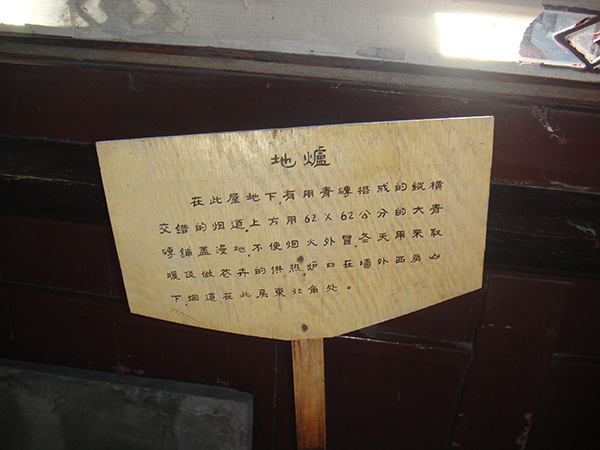 地爐
在此屋地下有用青磚搭成的縱橫
交错的烟道.上方用62×62公分的大青
磚鋪盖墁地.不使烟火外冒.冬天用來取
暖及做花卉的供热.炉口在墻外西房山
下.烟道在此房東北角处。